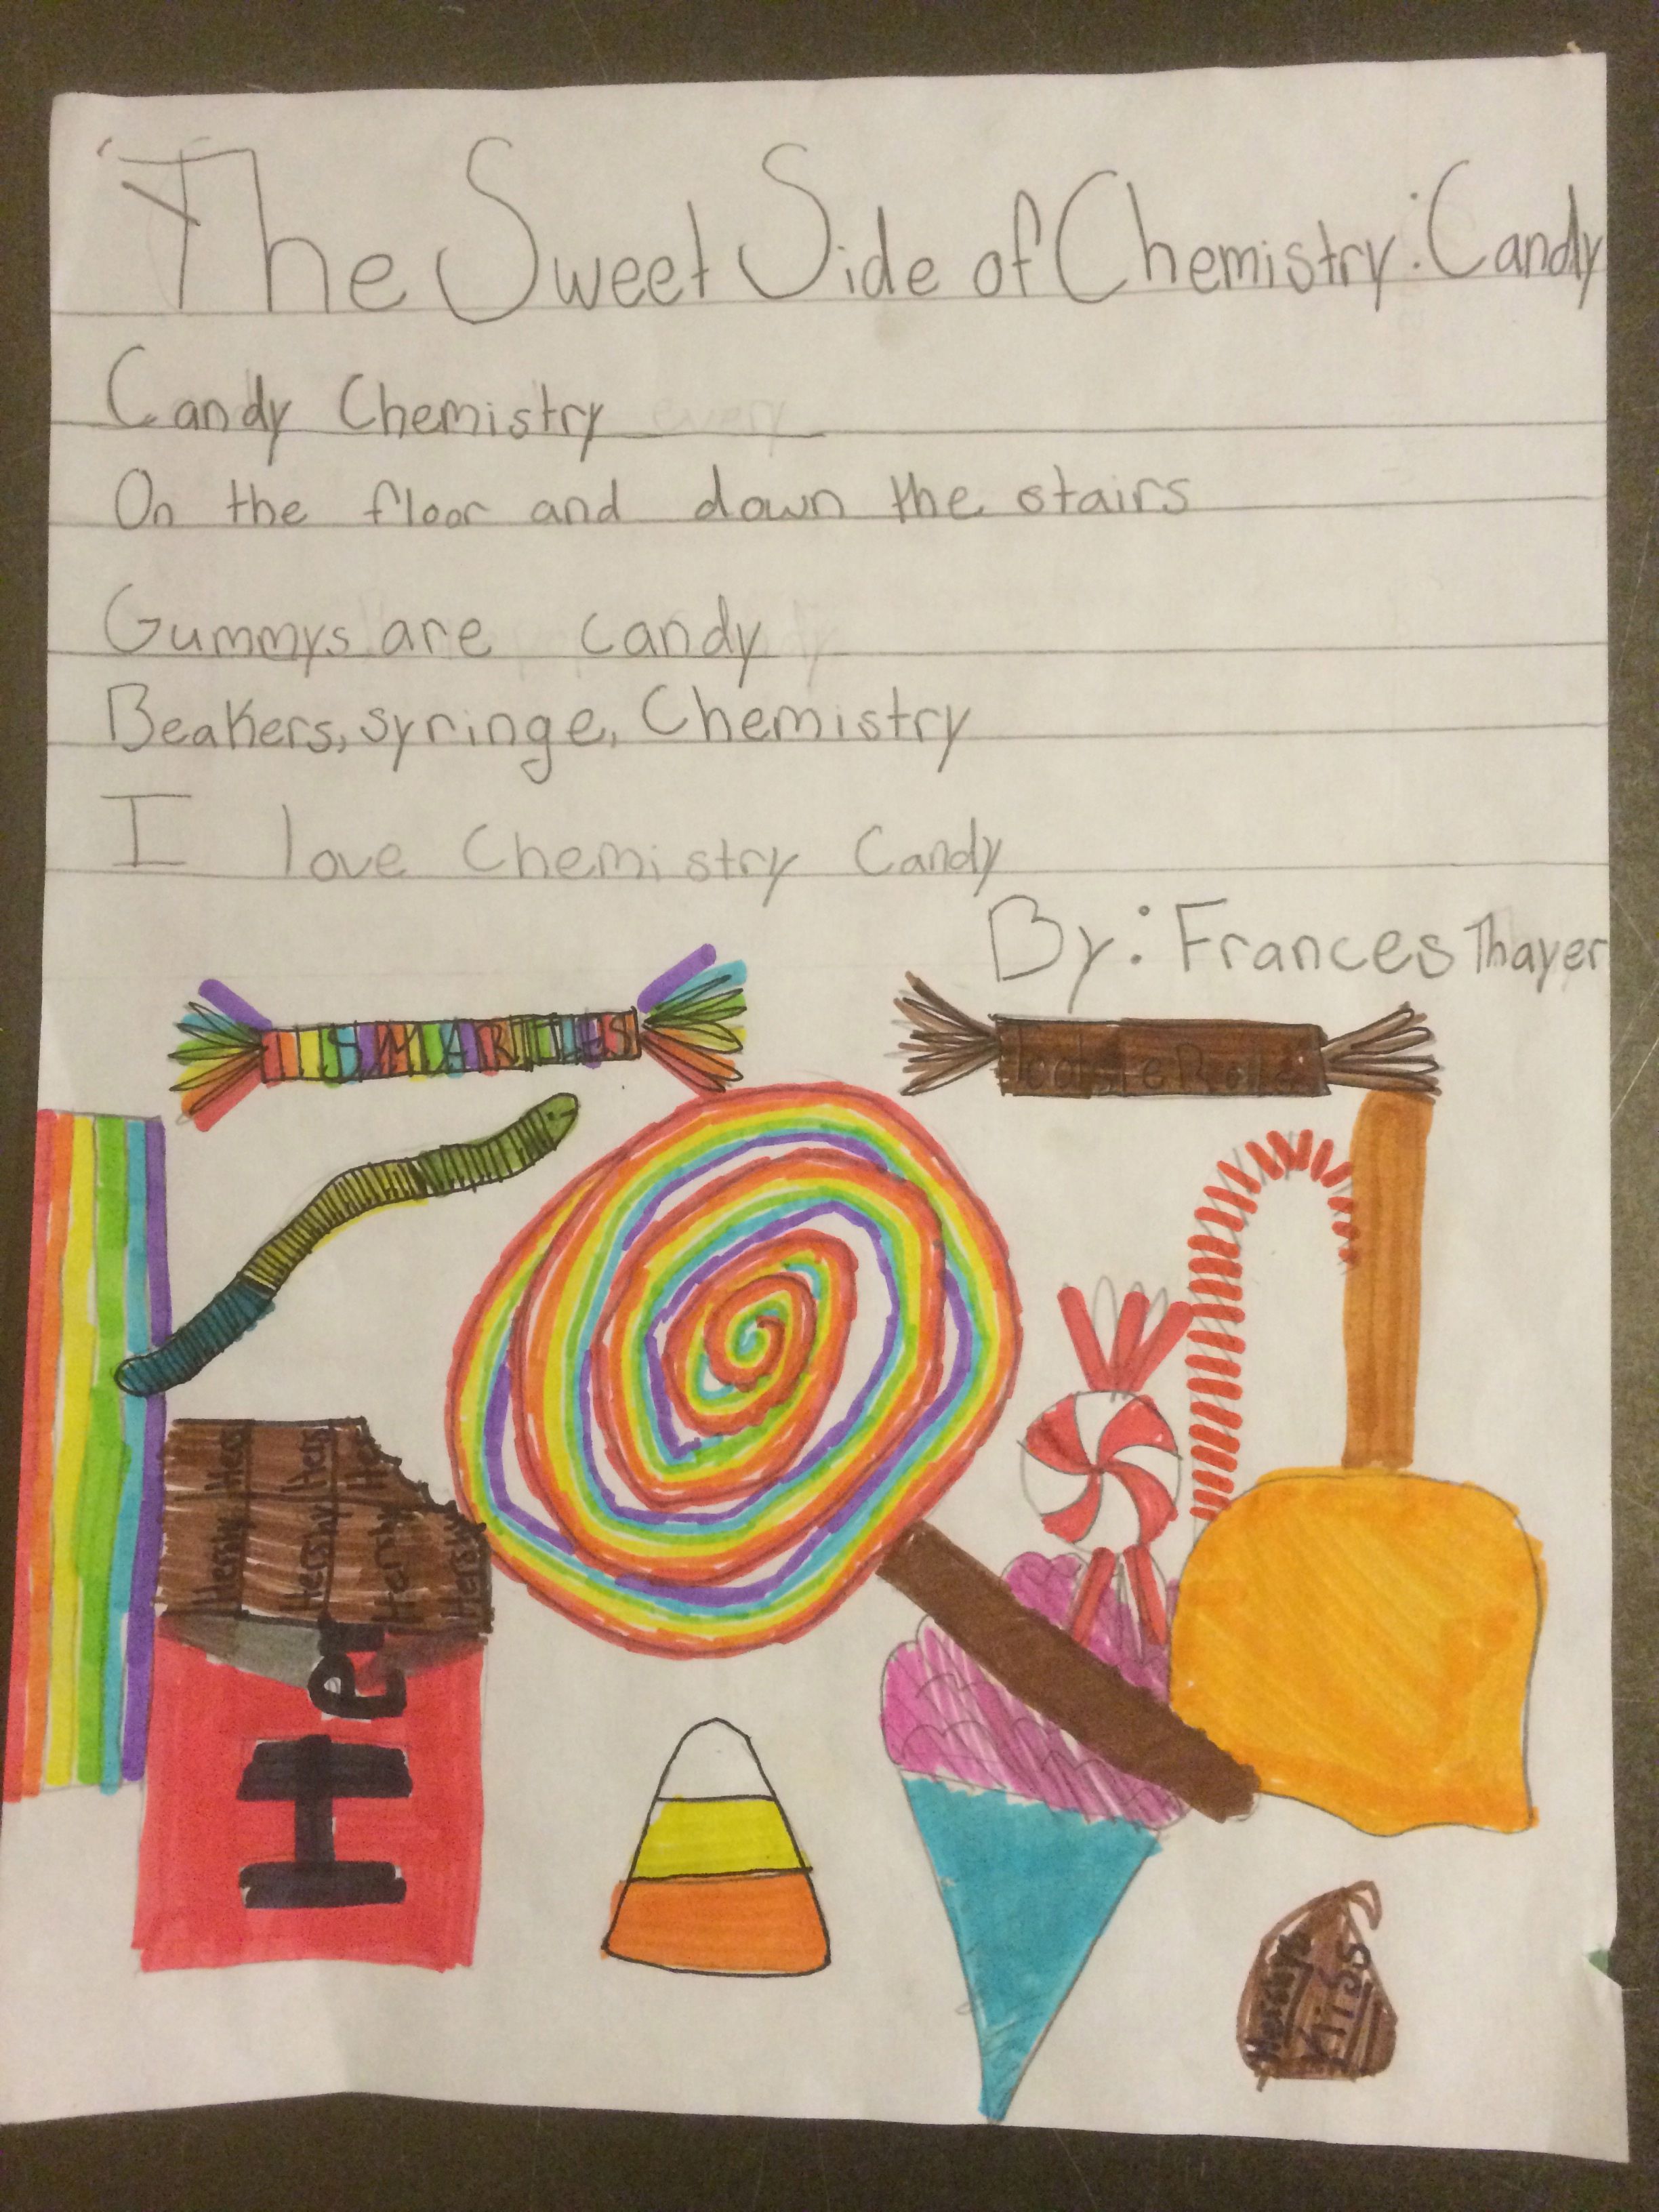 The Sweet Side of Chemistry: Candy
Candy Chemistry
On the floor and down the stairs
Gummys are candy
Beakers, syringe, Chemistry
I love Chemistry Candy
By: Frances Thayer
SMARTIES
Hershy Hers
Hershy Hers
Hershy Her
Hersy
Her
Kiss